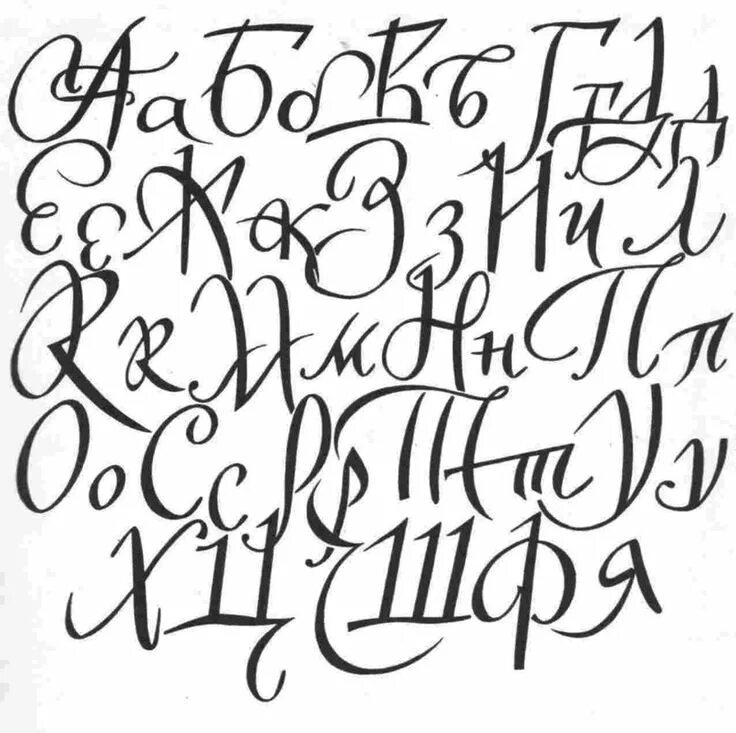 Аа Бб Вв Гг Дд
Ее Жж Зз Ии Л
Кк Мм Нн Пп
Оо Сс Рр Тт Уу
Х Ц Ш Ф Я